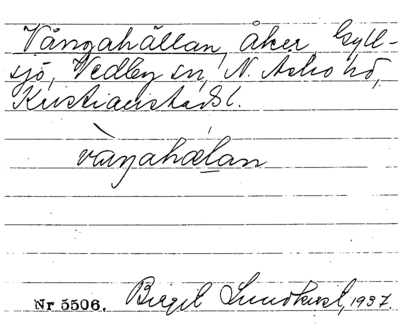 Vångahällan, åker, Gyll-
sjö, Vedby sn, N. Åsbo hd,
Kristianstads l.
våŋahælan
Nr 5506. Birgit Lundkvist, 1937.